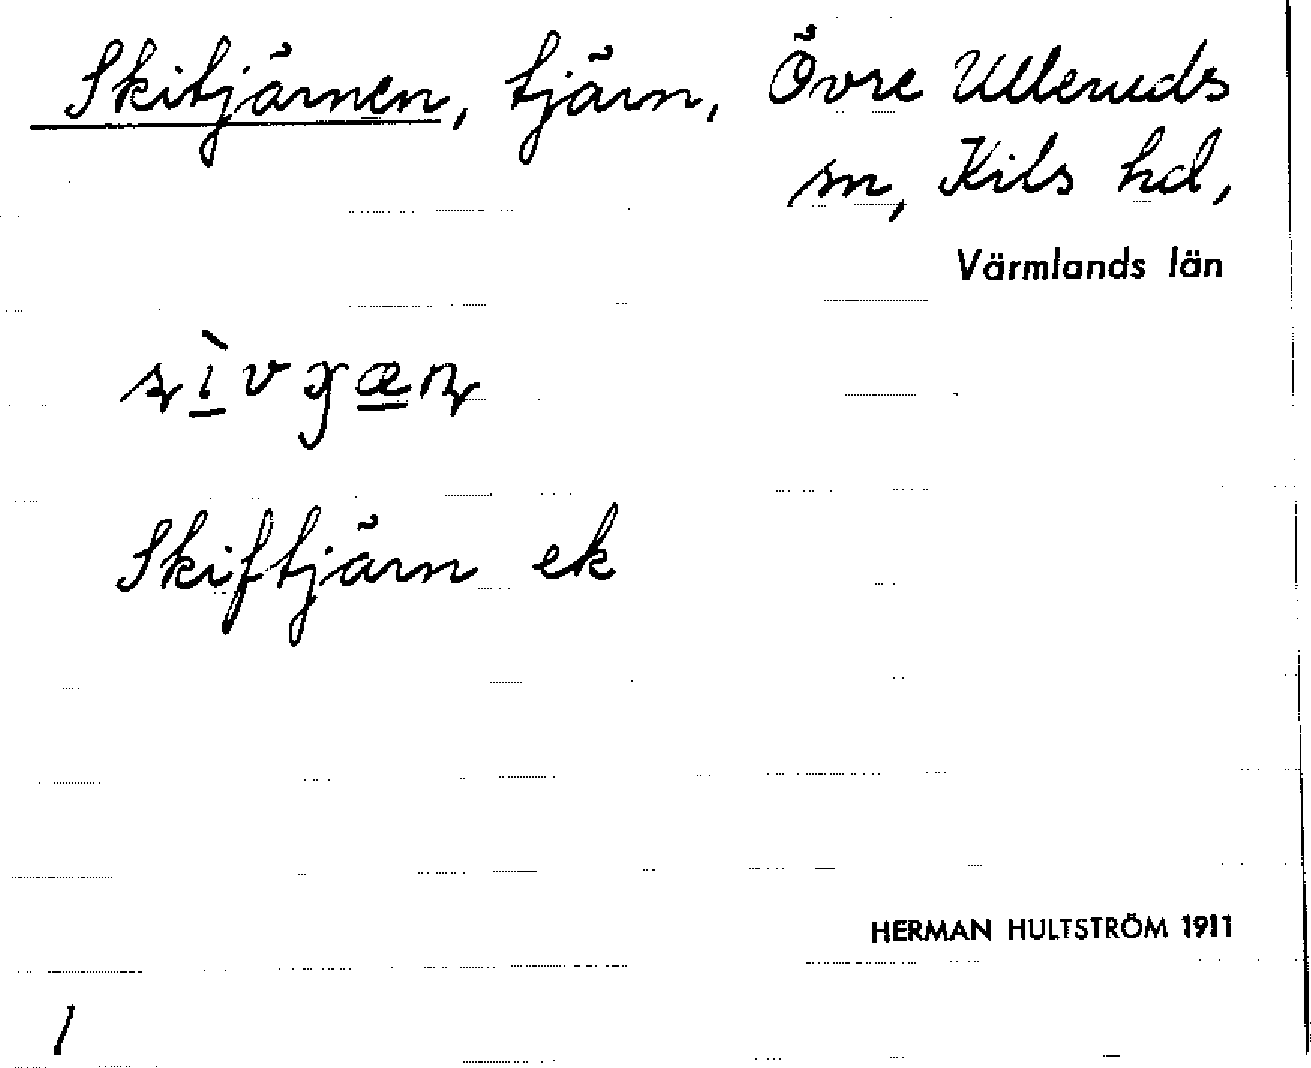 Skitjärnen, tjärn, Övre Ulleruds
sn, Kils hd,
Värmlands län
Skiftjärn ek
HERMAN HULTSTRÖM 1911
1